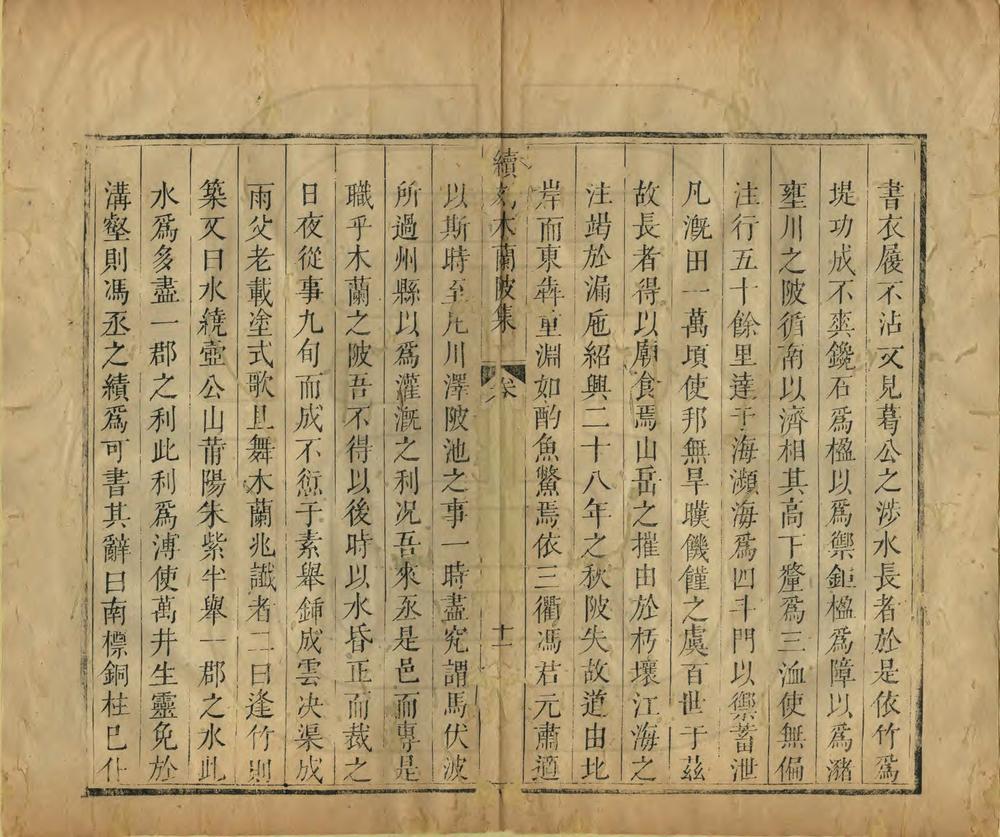 書衣履不沾又見葛公之涉水長者於是依竹爲
堤功成不爽鑱石爲楹以爲禦鉅楹爲障以爲瀦
壅川之陂循南以濟相其高下釐爲三洫使無偏
注行五十餘里達于海瀕海爲四斗門以禦蓄泄
凡漑田一萬頃使邦無旱暵饑饉之虞百世于茲
故長者得以廟食焉山岳之摧由於朽壤江海之
注竭於漏巵紹興二十八年之秋陂失故道由北
岸而東犇重淵如酌魚鱉焉依三衢馮君元肅適
續刋木蘭陂集
卷
十一
以斯時至凡川澤陂池之事一時盡究謂馬伏波
所過州縣以爲灌漑之利况吾來丞是邑而專是
職乎木蘭之陂吾不得以後時以水昏正而裁之
日夜從事九旬而成不愆于素舉鍤成雲决渠成
雨父老載塗式歌且舞木蘭兆讖者二曰逢竹則
築又曰水繞壺公山莆陽朱紫半舉一郡之水此
水爲多盡一郡之利此利爲溥使萬井生靈免於
溝壑則馮丞之績爲可書其辭曰南標銅柱已仆